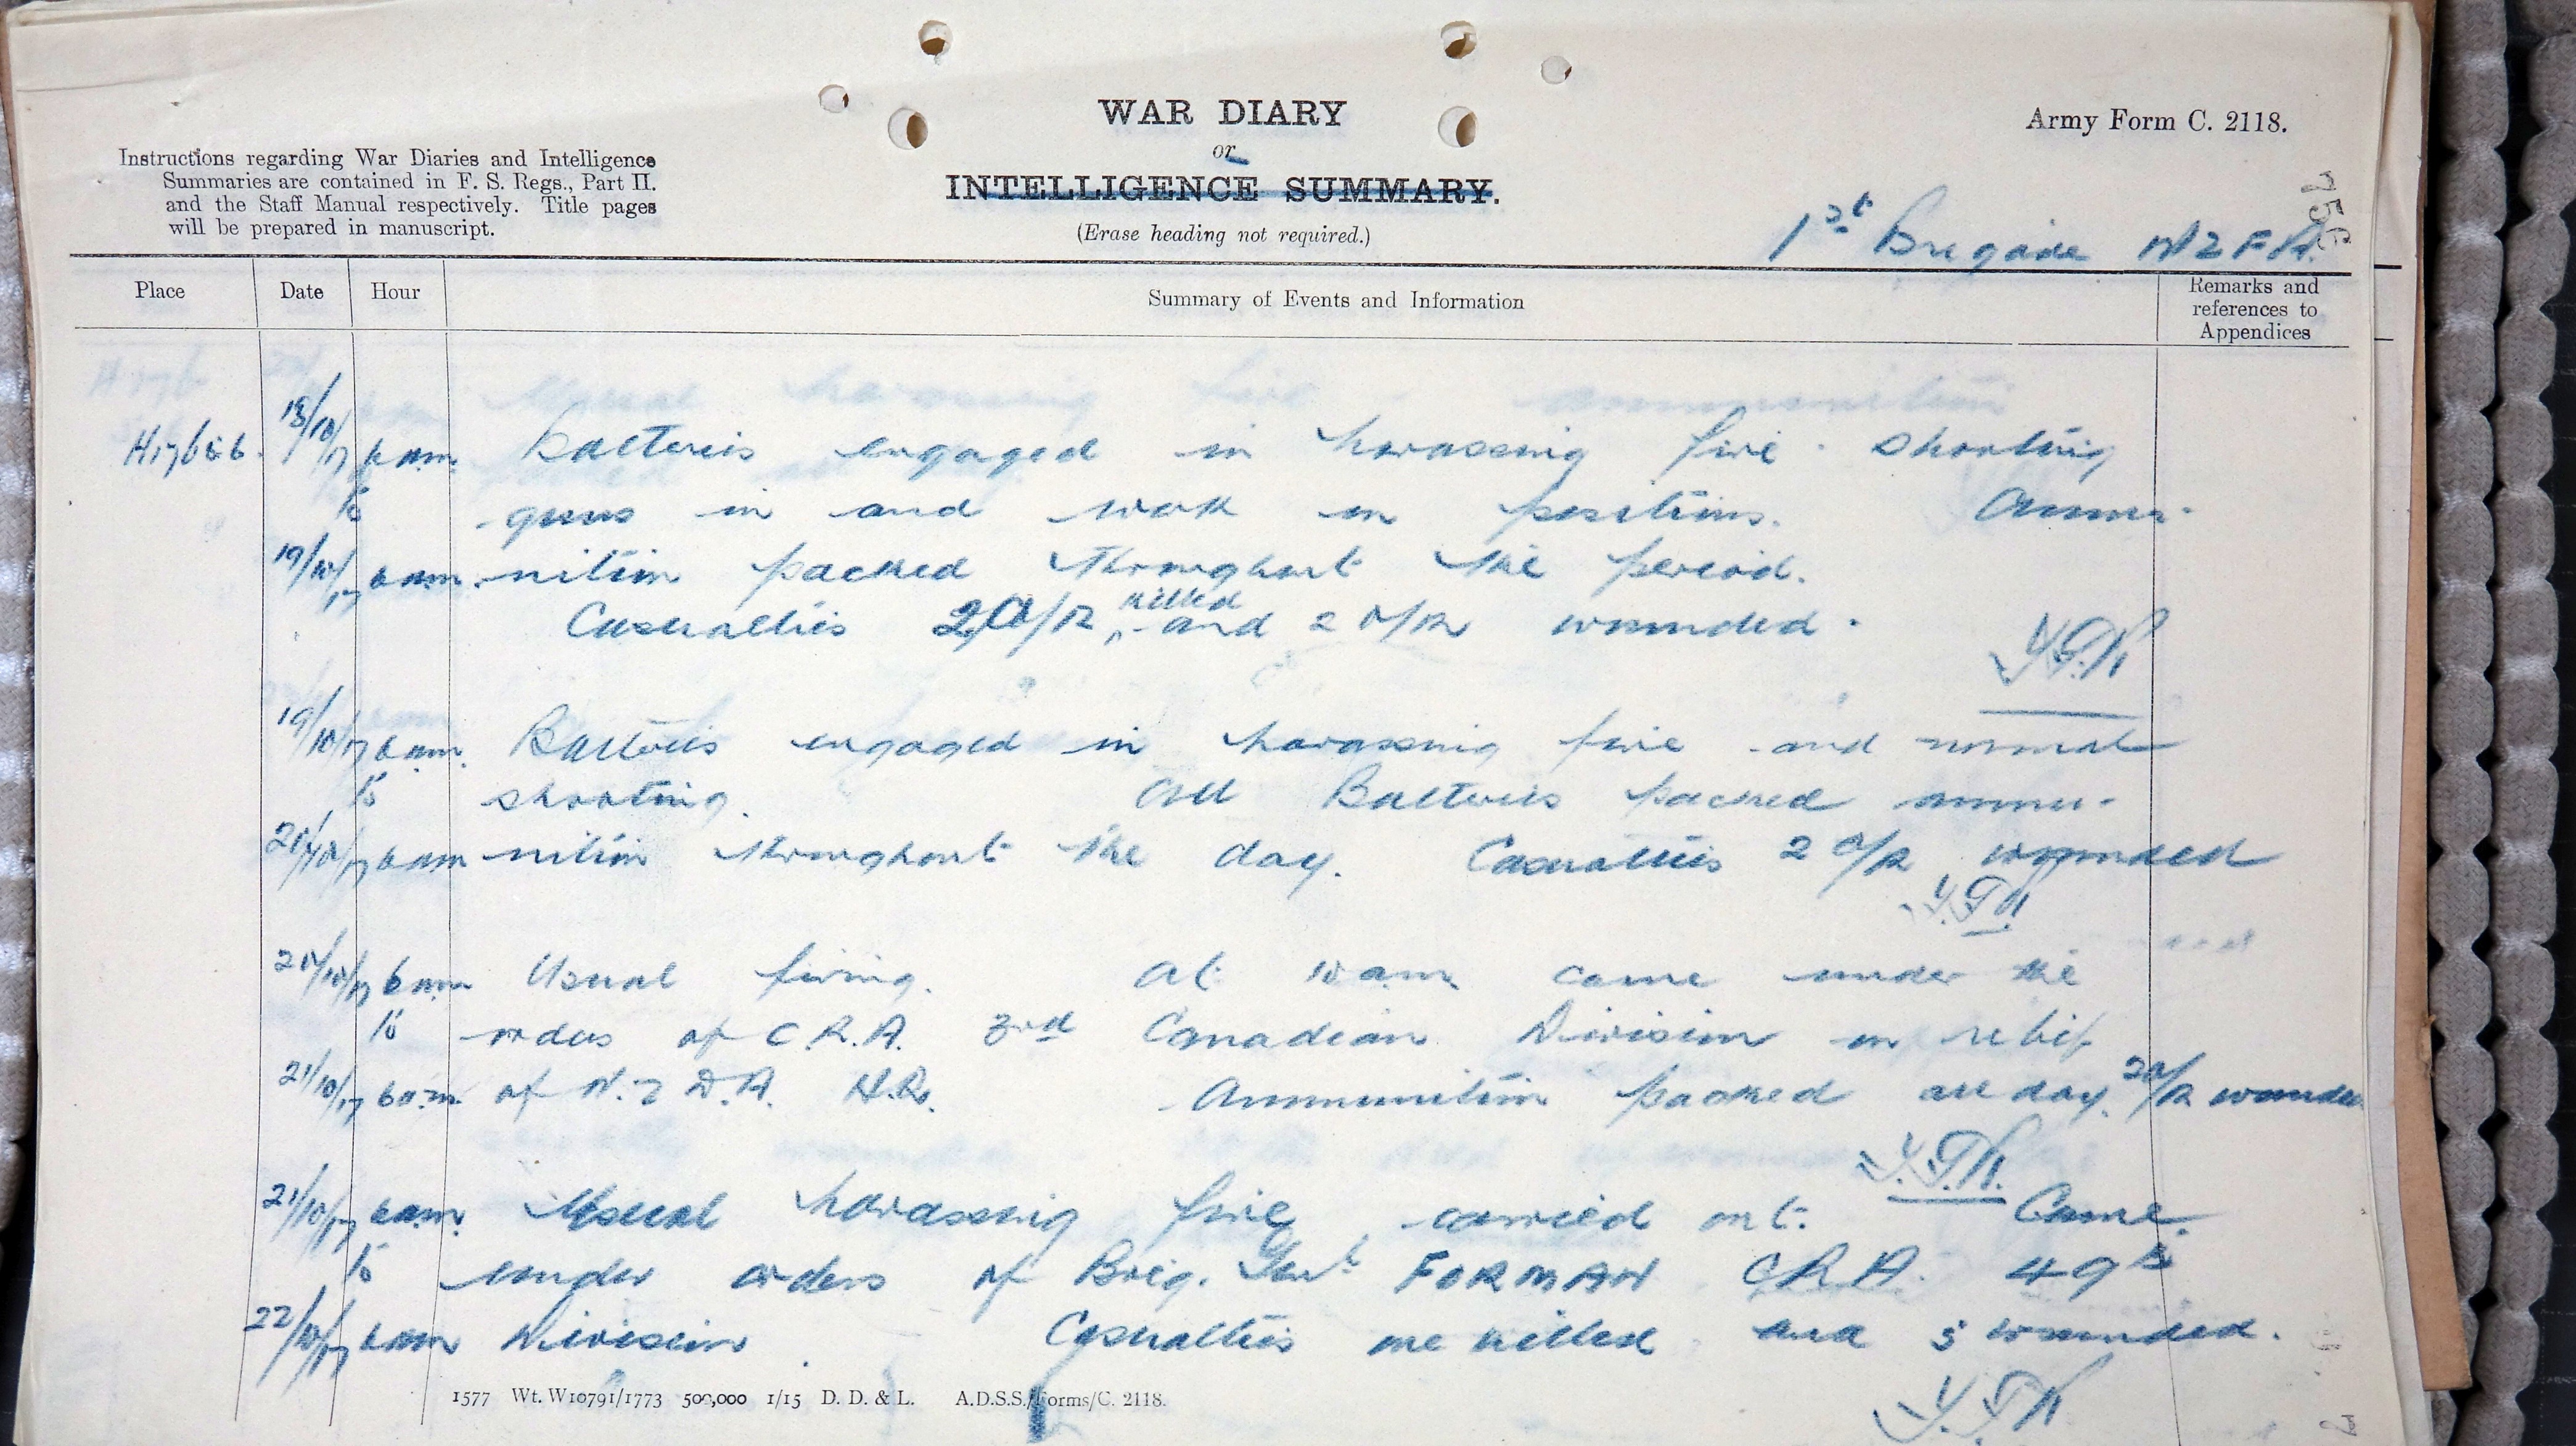 WAR DIARY
Army Form C. 2118.
or
Instructions regarding War Diaries and Intelligence
Summaries are contained in F. S. Regs., Part II.
and the Staff Manual respectively. Title pages
will be prepared in manuscript.
INTELLIGENCE SUMMARY.
(Erase heading not required.)
1st Brigade NZFA.
Place
Date
Hour
Summary of Events and Information
Remarks and
references to
Appendices
18/10/17 6 am Batteries engaged in harassing fire. Shooting
to guns in and work on positions. Ammu-
19/10/17 6 am nition packed throughout the period.
killed
Casualties 2 O/R and 2 O/R wounded.
19/10/17 6 am. Batteries engaged in harassing fire and normal
to shooting. All Batteries packed ammu-
20/10/17 6 am nition throughout the day. Casualties 2 O/R wounded
20/10/17 6 am Usual firing. At 10 am came under the
to orders of C.R.A. 3rd Canadian Division in relief
21/10/17 6 a.m of N.Z D.A. H.Q. Ammunition packed all day. 2 O/R wounded
21/10/17 6 am Usual harassing fire carried out. Came
to under orders of Brig. Genl. FORMAN C.R.A. 49th
22/10/17 6 am Division. Casualties one killed and 5 wounded.
1577 Wt. W10791/1773 500,000 1/15 D. D. & L. A.D.S.S./Forms/C. 2118.